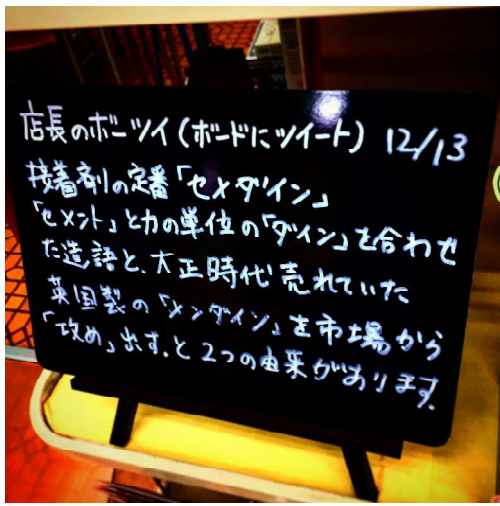 店長のボーツイ(ボードにツイート) 12/13
接着剤の定番「セメダイン」
「セメント」と力の単位の「ダイン」を合わせ
た造語と、大正時代売れていた
英国製の「メンダイン」を市場から
「攻め」出す、と2つの由来があります。